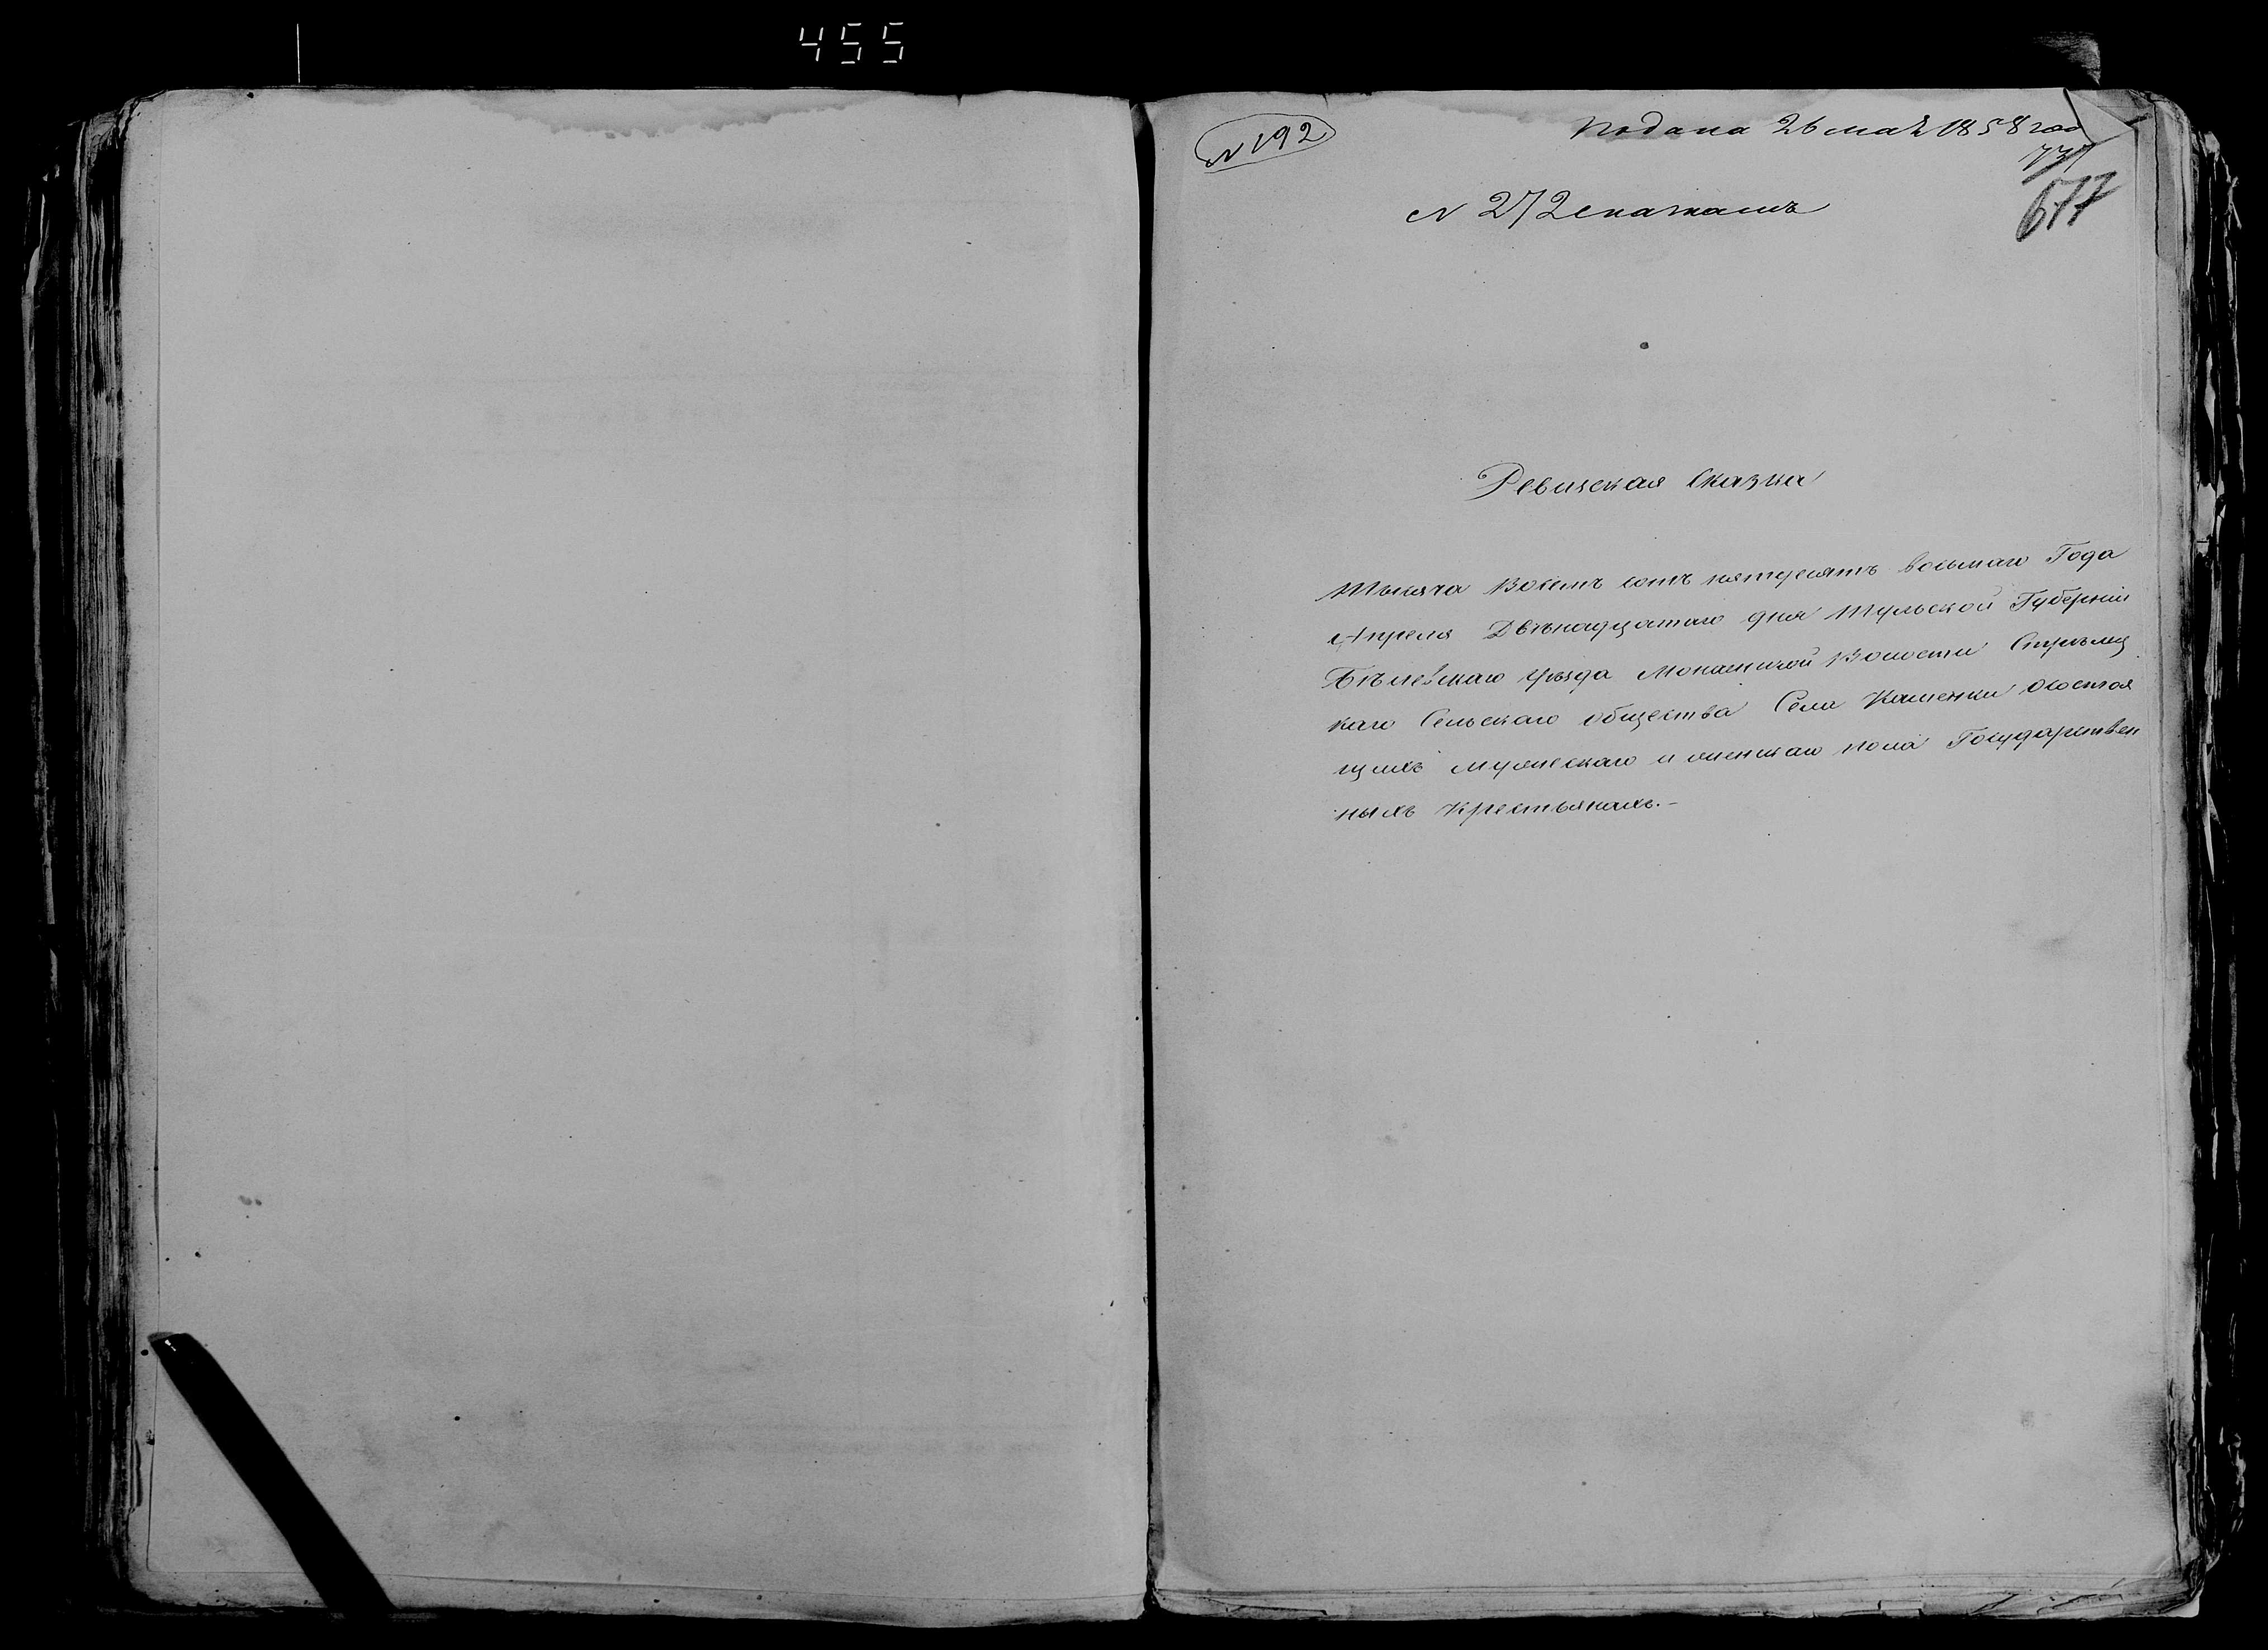 455
N 192
Подана 26 мая 1858 года
737
677
N 272
Ревизская Сказка
Тысяча Восемь сотъ пятдесятъ восьмаго Года
Апреля Двѣнадцатаго дня Тульской Губерніи
Бѣлевскаго уѣзда Волости Стрѣлец
каго Сельскаго общества Села Каменки о состоя
щихъ мужескаго и женскаго пола Государствен
ныхъ Крестьянахъ.-